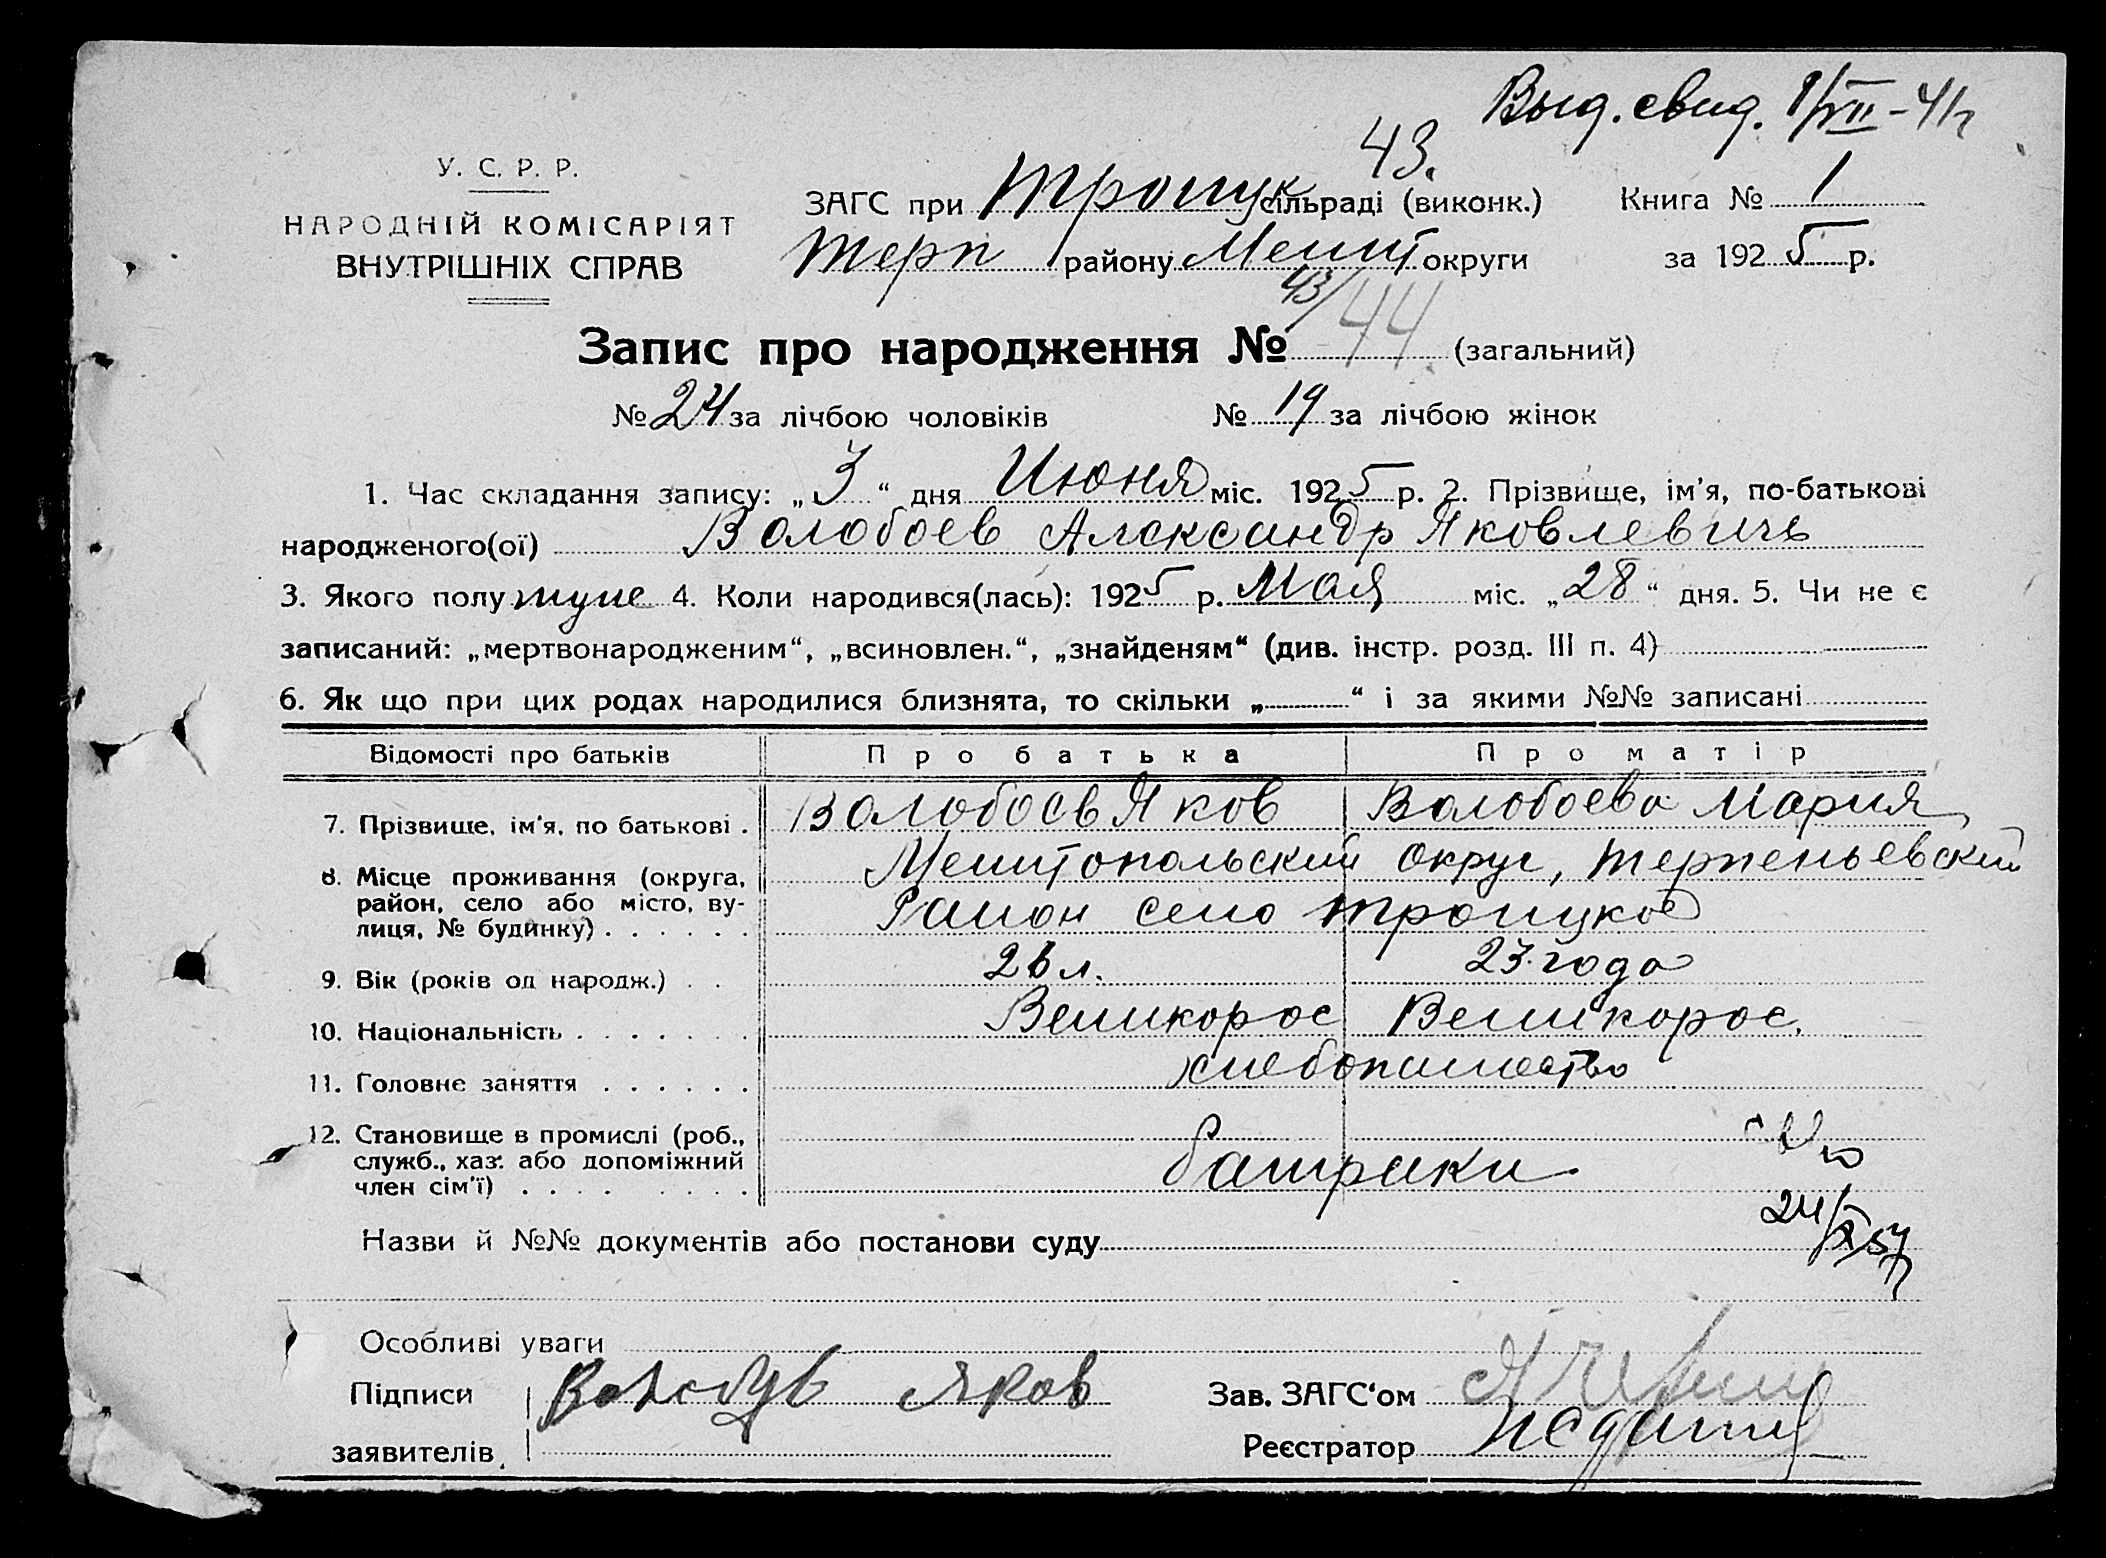 Выд. свид. 9/VII-41г
43.
У. С. Р. Р.
НАРОДНІЙ КОМІСАРІЯТ
ВНУТРІШНІХ СПРАВ
ЗАГС при Троицк сільраді (виконк.) Книга № 1
Терп району Мелит округи за 1925 р.
Запис про народження № 43/44 (загальний)
№ 24 за лічбою чоловіків № 19 за лічбою жінок
1. Час складання запису: „3“ дня Июня міс. 1925 р. 2. Прізвище, ім'я, по-батькові
народженого(ої) Волобоев Александр Яковлевичь
3. Якого полу муже 4. Коли народився(лась): 1925 р. Мая міс. „28“ дня. 5. Чи не є
записаний: „мертвонародженим“, „всиновлен.“, „знайденям“ (див. інстр. розд. III п. 4)
6. Як що при цих родах народилися близнята, то скільки „ “ і за якими №№ записані
Відомості про батьків Про батька Про матір
7. Прізвище, ім'я, по батькові . Волобоев Яков Волобоева Мария
8. Місце проживання (округа, Мелитопольский округ, Терпеньевский
район, село або місто, ву-
лиця, № будинку) . . . . . . Район село Троицкое
9. Вік (років од народж.) . . 26 л. 23 года
10. Національність . . . . . . . Великорос Великорос.
11. Головне заняття . . . . . . хлебопашество
12. Становище в промислі (роб.,
служб., хаз. або допоміжний
член сім'ї) . . . . . . . . батраки
24/X 57
Назви й №№ документів або постанови суду
Особливі уваги
Підписи Волобуев Яков Зав. ЗАГС'ом
заявителів Реєстратор